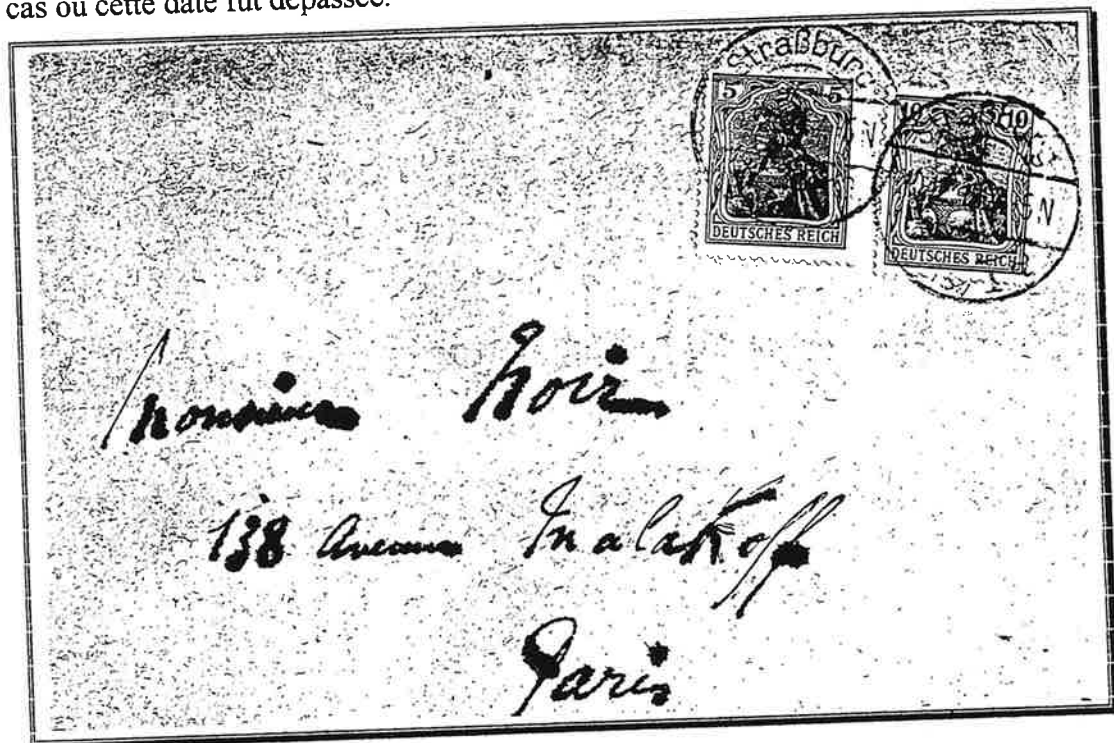 cas où cette date fut dépassée.
Straßburg
5 5
10 10
DEUTSCHES REICH
DEUTSCHES REICH
Monsieur Noir
138 Avenue Malakoff
Paris